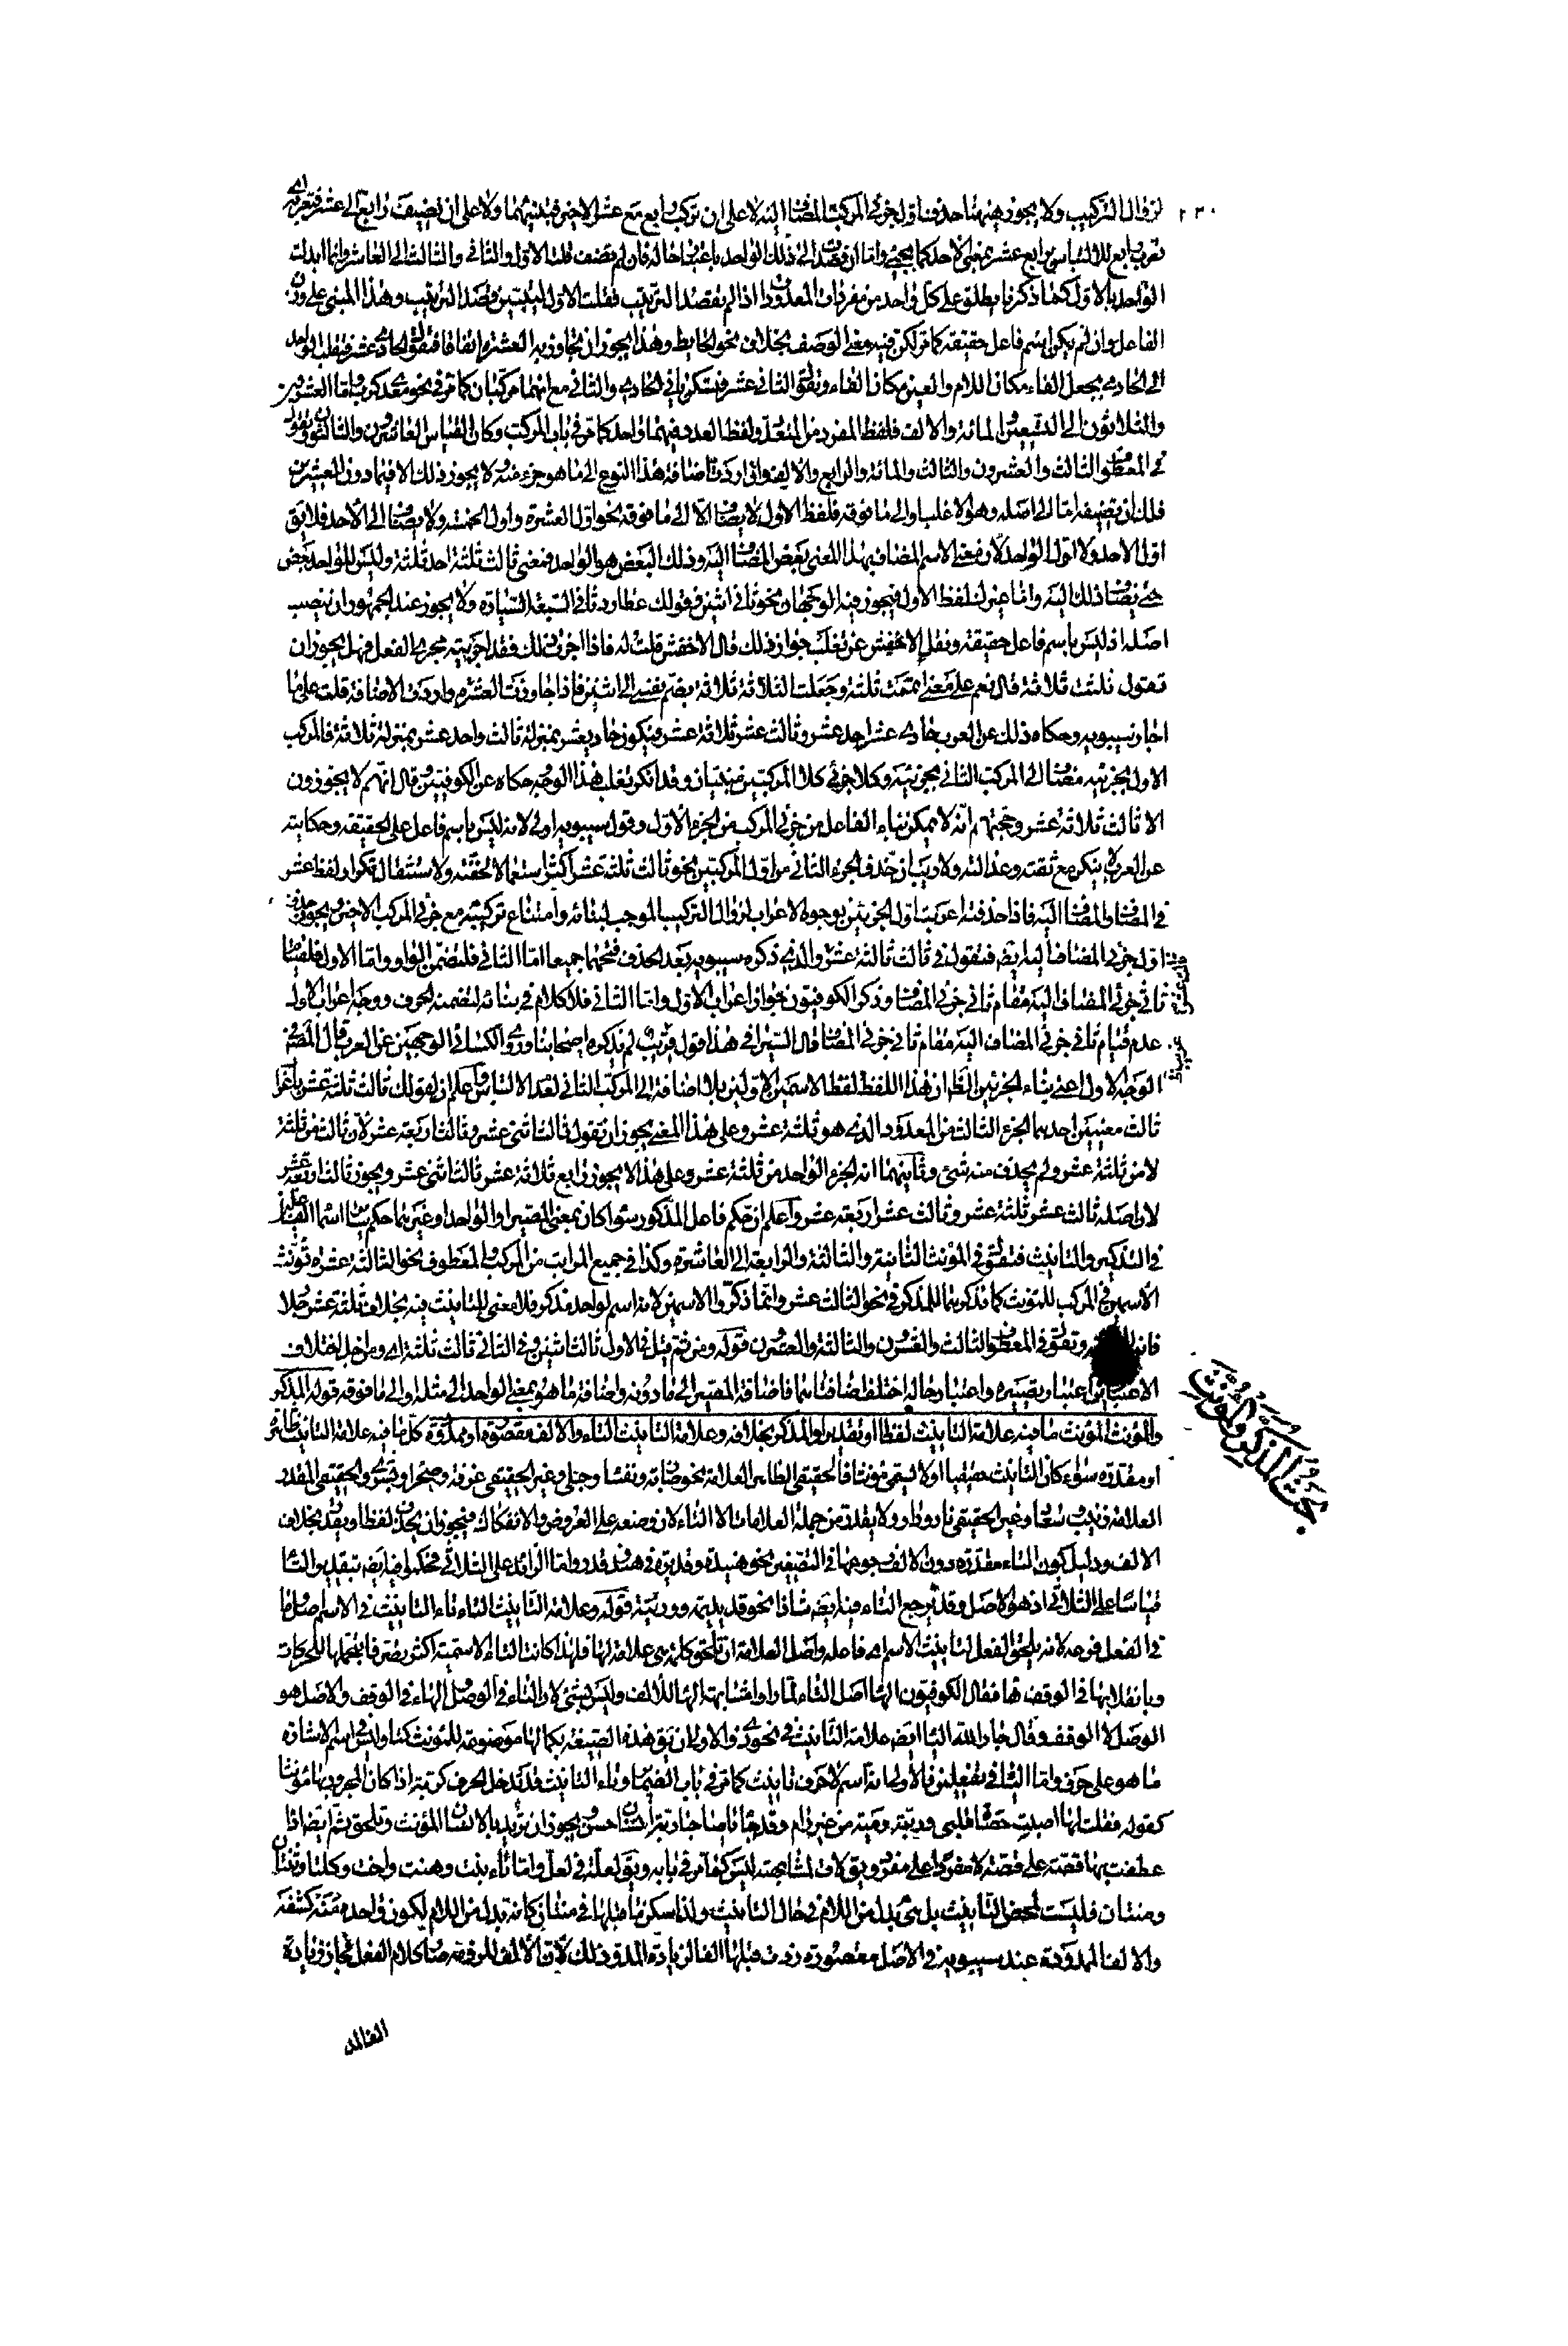 ٢٣٠
لزوال التركيب ولا يجوز ههنا حذف اول جزئى المركب المضاف اليه لا على ان تركب رابع مع عشر الاخير فتبنيهما ولا على ان تضيف رابع الى عشر فتعربه اى
تعرب رابع للالتباس برابع عشر بمعنى الاحد كما يجيئ واما ان قصدت الى ذلك الواحد باعتبار حاله فان لم تضف قلت الاول والثانى والثالث الى العاشر وانما ابدلت
الواحد بالاول كما ذكرنا يطلق على كل واحد من مفردات المعدود اذا لم يقصد الترتيب فقلت الاول ليتبين قصد الترتيب وهذا المبنى على وزن
الفاعل وان لم يكن اسم فاعل حقيقة كما مر لكن فيه معنى الوصف بخلاف نحو الحايط وهذا يجوز ان تجاوز به العشرة اتفاقا فتقول الحادى عشر فتقلب الواحد
الى الحادى بجعل الفاء مكان اللام والعين مكان الفاء وتقول الثانى عشر فتسكن ياء الحادى والثانى مع انهما مركبان كما مر فى نحو معدى كرب واما العشرون
والثلاثون الى التسعين والمائة والالف فلفظ المفرد من المتعدد ولفظ العدد فيهما واحد كما مر فى باب المركب وكان القياس العاشرون والثالثون وتقول
فى المعطوف الثالث والعشرون والثالث والمائة والرابع والالف وان اردت اضافة هذا النوع الى ما هو جزء منه ولا يجوز ذلك الا فيما دون العشرين
فلك ان تضيفه اما الى اصله وهو الاغلب او الى ما فوقه فلفظ الاول لا يضاف الا الى ما فوقه نحو اول العشرة واول الخمسة ولا يضاف الى الاحد فلا يق
اول الاحد ولا اول الواحد لان معنى الاسم المضاف بهذا المعنى بعض المضاف اليه وذلك البعض هو الواحد فمعنى ثالث ثلثة احد ثلثة وليس للواحد بعض
حتى يضاف ذلك اليه واما غير لفظ الاول فيجوز فيه الوجهان نحو ثانى اثنين وقولك عطارد ثانى السبعة السيارة ولا يجوز عند الجمهور ان ينصب
اصله اذ ليس باسم فاعل حقيقة ونقل الاخفش عن ثعلب جواز ذلك قال الاخفش قلت له فاذا اجزت ذلك فقد اجريته مجرى الفعل فهل يجوز ان
تقول ثلثت ثلاثة قال نعم على معنى اتممت ثلثة وجعلت الثلاثة ثلاثة بضم نفسى الى اثنين فاذا جاوزت العشرة واردت الاضافة قلت على ما
اجاز سيبويه وحكاه ذلك عن العرب حادى عشر احد عشر وثالث عشر ثلاثة عشر فيكون حادى عشر بمنزلة ثالث واحد عشر بمنزلة ثلاثة فالمركب
الاول بجزئيه مضاف الى المركب الثانى بجزئيه وكلا جزئى كلا المركبين مبنيان وقد انكر ثعلب هذا الوجه حكاه عن الكوفيين وقال انهم لا يجوزون
الا ثالث ثلاثة عشر وحجتهم انه لا يمكن بناء الفاعل من جزئى المركب من الجزء الاول وقول سيبويه اولى لانه ليس باسم فاعل على الحقيقة وحكايته
عن العرب لا ينكر مع ثقته وعدالته ولا ريب ان حذف الجزء الثانى من اول المركبين نحو ثالث ثلثة عشر اكثر استعمالا لخفته ولاستثقال تكرار لفظ عشر
فى المضاف والمضاف اليه فاذا حذفته اعربت اول الجزئين بوجوه الاعراب لزوال التركيب الموجب لبنائه وامتناع تركيبه مع جزئى المركب الاخير ويجوز حذف
اول جزئى المضاف اليه ايضه فتقول فى ثالث ثالثة عشر والذى ذكره سيبويه بعد الحذف فتحهما جميعا اما الثانى فلتضمن الواو واما الاول فلقيام
ثانى جزئى المضاف اليه مقام ثانى جزئى المضاف وذكر الكوفيون جواز اعراب الاول واما الثانى فلا كلام فى بنائه لتضمنه الحرف ووجه اعراب الاول
عدم قيام ثانى جزئى المضاف اليه مقام ثانى جزئى المضاف قال السيرافى هذا قول قريب لم يذكره اصحابنا وروى الكسائى الوجهين عن العرب قال المصنف
الوجه الاول اعنى بناء الجزئين الظ ان هذا اللفظ لفظا الاسمين الاولين بلا اضافة الى المركب الثانى لفقد الالتباس واعلم ان لقولك ثالث ثلثة عشر باعراب
ثالث معنيين احدهما الجزء الثالث من المعدود الذى هو ثلثة عشر وعلى هذا المعنى يجوز ان تقول ثالث اثنى عشر وثالث اربعة عشر لان ثالث من ثلثة
لا من ثلثة عشر ولم يحذف منه شئ وثانيهما انه الجزء الواحد من ثلثة عشر وعلى هذا لا يجوز رابع ثلاثة عشر ثالث اثنى عشر ويجوز ثالث اربعة عشر
لان اصله ثالث عشر ثلثة عشر وثالث عشر اربعة عشر واعلم ان حكم فاعل المذكور سواء كان بمعنى المصير او الواحد او غيرهما حكم سائر اسماء الفاعلين
فى التذكير والتانيث فتقول فى المؤنث الثانية والثالثة والرابعة الى العاشرة وكذا فى جميع المراتب من المركب والمعطوف نحو الثالثة عشرة تؤنث
الاسمين فى المركب للمؤنث كما تذكرهما للمذكر فى نحو الثالث عشر وانما ذكروا الاسمين لانه اسم لواحد مذكر فلا معنى للتانيث فيه بخلاف ثلثة عشر رجلا
فانه وتقول فى المعطوف الثالث والعشرون والثالثة والعشرون قوله ومن ثم قيل فى الاول ثالث اثنين وفى الثانى ثالث ثلثة اى ومن اجل اختلاف
الاعتبارين اعتبار تصييره واعتبار حاله اختلف اضافتاهما فاضافة المصير الى ما دونه واضافة ما هو بمعنى الواحد الى مثله او الى ما فوقه قوله المذكر
والمؤنث المؤنث ما فيه علامة التانيث لفظا او تقديرا والمذكر بخلافه وعلامة التانيث التاء والالف مقصورة او ممدودة كل ما فيه علامة التانيث ظاهرة
او مقدرة سواء كان التانيث حقيقيا اولا يسمى مؤنثا فالحقيقى الظاهر العلامة نحو ضاربة ونفساء وحبلى وغير الحقيقى غرفة وصحراء وبشرى والحقيقى المقدر
العلامة زينب وسعاد وغير الحقيقى نار ودار ولا يقدر من جملة العلامات الا التاء لان وضعه على العروض والانفكاك فيجوز ان يحذف لفظا ويقدر بخلاف
الالف ودليل كون التاء مقدرة دون الالف رجوعها فى التصغير نحو هنيدة وقديرة فى هند وقدر واما الزائد على الثلاثى فحكموا فيه ايضه بتقدير التاء
قياسا على الثلاثى اذ هو الاصل وقد يرجع التاء فيه ايضه شاذا نحو قديديمة ووريئة قوله وعلامة التانيث التاء تاء التانيث فى الاسم اصل وما
فى الفعل فرعه لانه يلحق الفعل لتانيث الاسم اى فاعله واصل العلامة ان تلحق كلمة هى علامة لها فلهذا كانت التاء الاسمية اكثر تصرفا بتحملها للحركات
وبانقلابها فى الوقف هاء فقال الكوفيون الهاء اصل التاء لما راوا مشابهة الهاء للالف وليس بشئ لان التاء فى الوصل والهاء فى الوقف والاصل هو
الوصل لا الوقف وقال جار الله الياء ايضه علامة التانيث فى نحو ذى والاولى ان يق هذه الصيغة بكمالها موضوعة للمؤنث كتا وليس فى اسم الاشارة
ما هو على حرف واما الياء فى تفعلين فالاولى انه اسم لا حرف تانيث كما مر فى باب الضمير وتاء التانيث قد تدخل الحرف كربت اذا كان المجرور بها مؤنثا
كقوله فقلت لها اصبت حصاة قلبى وربت رمية من غير رام
عطفت بها قصة على قصة لا مفردا على مفرد ويق لات لمشابهته ليس كما مر فى بابه ويق لعلت فى لعل واما تاء بنت وهنت واخت وكلتا وثنتان
ومنتان فليست لمحض التانيث بل هى بدل من اللام فى حال التانيث ولذا سكن ما قبلها
والالف الممدودة عند سيبويه فى الاصل مقصورة زيدت قبلها الف لزيادة المد وذلك لان الالف للزومه صار كلام الفعل فجاز زيادة
بحث المذكر والمؤنث